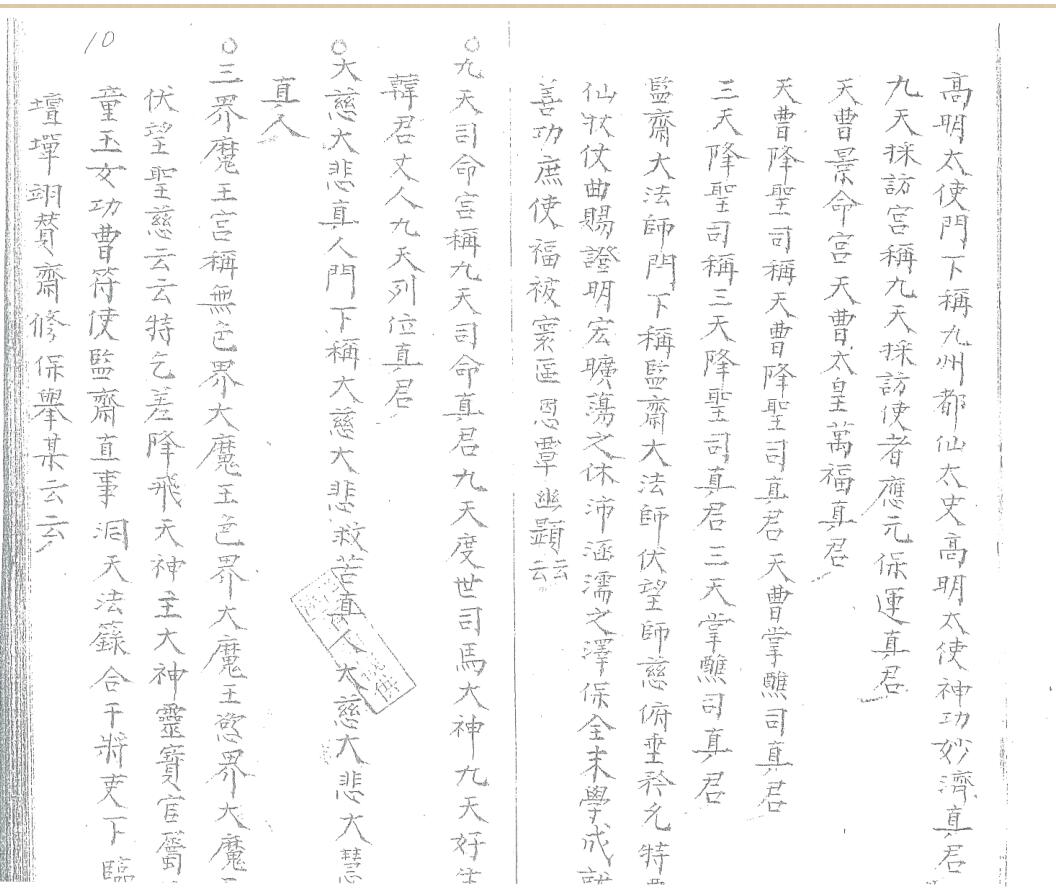 高明太使門下稱九州都仙太史高明大使神功妙濟真君
九天採訪宮稱九天採訪使者應元保運真君
天曹景命宮天曹太皇萬福真君
天曹降聖司稱天曹降聖司真君天曹掌醮司真君
三天降聖司稱三天降聖司真君三天掌醮司真君
監齋大法師門下稱監齋大法師伏望師慈俯垂矜允特
仙 仗曲賜證明宏曠蕩之休沛涵濡之澤保全末學成就
善功庶使福被寰區恩覃幽顯云云
○九天司命宮稱九天司命真君九天度世司馬大神九天好生
韓君丈人九天列位真君
○大慈大悲真人門下稱大慈大悲救苦真人大慈大悲大慧
真人
○三界魔王宮稱無色界大魔王色界大魔王慾界大魔
伏望聖慈云云特乞差降飛天神王大神靈寶官屬
10
童玉女功曹符使監齋直事洞天法籙合干將吏下臨
壇墠翊賛齋修保舉某云云